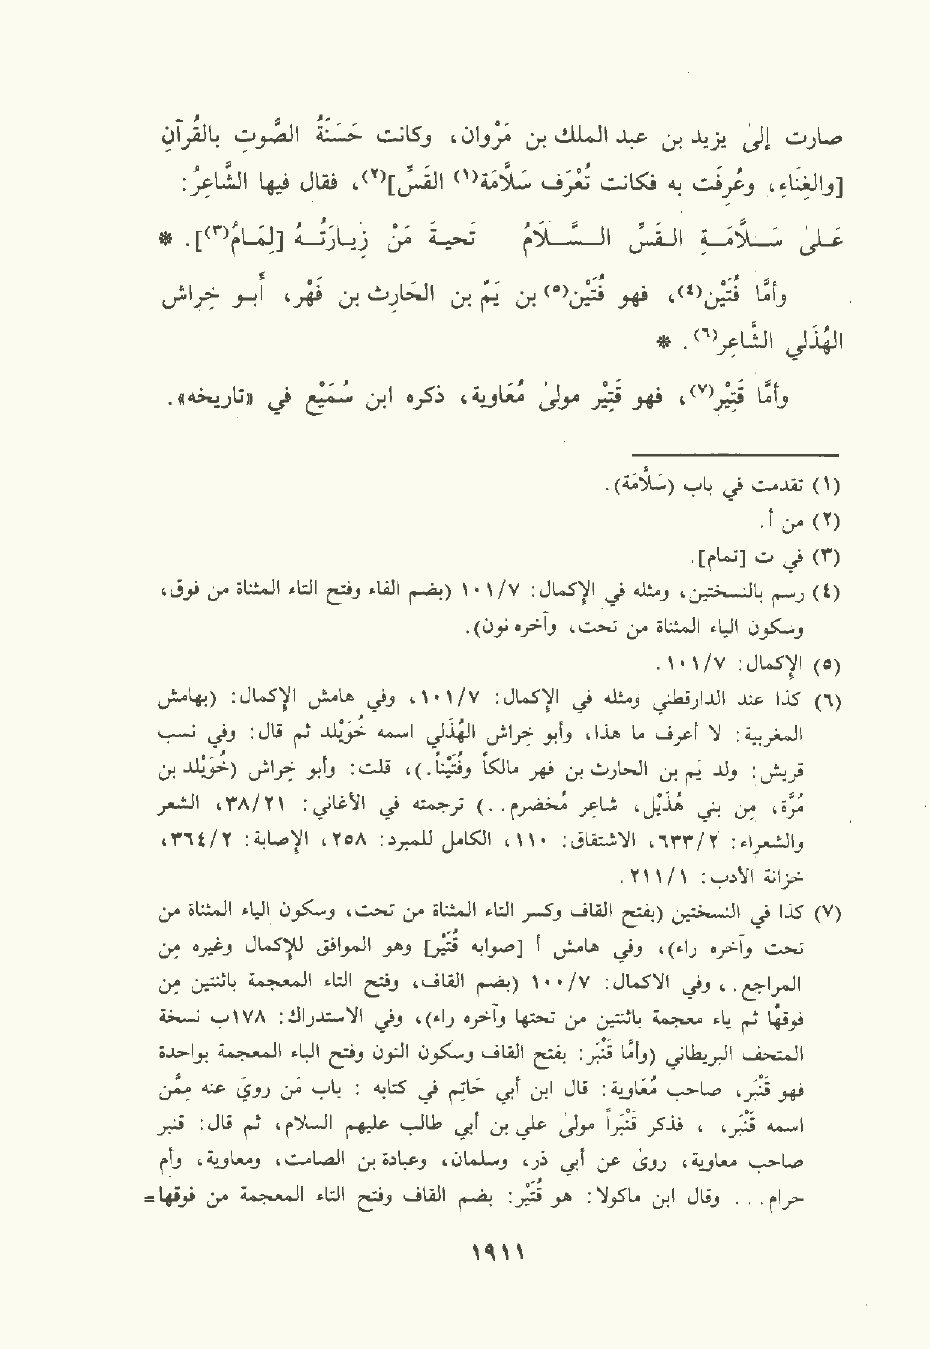 صارت إلىٰ يزيد بن عبد الملك بن مَرْوان، وكانت حَسَنَةُ الصَّوتِ بالقُرآنِ
[والغِنَاءِ، وعُرِفَت به فكانت تُعْرَف سَلَّامَة(١) القَسِّ](٢)، فقال فيها الشَّاعِرُ:
عَـلىٰ سَـــلَّامَـةِ القَـسِّ الـــسَّــلَامُ تَحيـة مَنْ زِيـارَتُـهُ [لِـمَـامُ(٣)]. *
وأمَّا فُتَيْن(٤)، فهو فُتَيْن(٥) بن يَمّ بن الحَارِث بن فَهْر، أبـو خِراش
الهُذَلي الشَّاعِر(٦). *
وأمَّا قَتِيْر(٧)، فهو قَتِيْر مولىٰ مُعَاوية، ذكره ابن سُمَيْع في «تاريخه».
(١) تقدمت في باب (سَلَّامَة).
(٢) من أ.
(٣) في ت [تمام].
(٤) رسم بالنسختين، ومثله في الإكمال: ١٠١/٧ (بضم الفاء وفتح التاء المثناة من فوق،
وسكون الياء المثناة من تحت، وآخره نون).
(٥) الإكمال: ١٠١/٧.
(٦) كذا عند الدارقطني ومثله في الإكمال: ١٠١/٧، وفي هامش الإكمال: (بهامش
المغربية: لا أعرف ما هذا، وأبو خِراش الهُذَلي اسمه خُوَيْلد ثم قال: وفي نسب
قريش: ولد يَمّ بن الحارث بن فهر مالكاً وفُتَيْناً.)، قلت: أبو خِراش (خُوَيْلد بن
مُرَّة، من بني هُذَيْل، شاعِر مُخضرم..) ترجمته في الأغاني: ٣٨/٢١، الشعر
والشعراء: ٦٣٣/٢، الاشتقاق: ١١٠، الكامل للمبرد: ٢٥٨، الإصابة: ٣٦٤/٢،
خزانة الأدب: ٢١١/١.
(٧) كذا في النسختين (بفتح القاف وكسر التاء المثناة من تحت، وسكون الياء المثناة من
تحت وآخره راء)، وفي هامش أ [صوابه قُتَيْر] وهو الموافق للإكمال وغيره مِن
المراجع.، وفي الاكمال: ١٠٠/٧ (بضم القاف، وفتح التاء المعجمة باثنتين مِن
فوقها ثم ياء معجمة باثنتين من تحتها وآخره راء)، وفي الاستدراك: ١٧٨ب نسخة
المتحف البريطاني (وأمَّا قَنْبَر: بفتح القاف وسكون النون وفتح الباء المعجمة بواحدة
فهو قَنْبَر، صاحب مُعَاوية: قال ابن أبي حَاتِم في كتابه : باب مَن رويَ عنه مِمَّن
اسمه قَنْبَر، ، فذكر قَنْبَراً مولىٰ علي بن أبي طالب عليهم السلام، ثم قال: قنبر
صاحب معاوية، روىٰ عن أبي ذر، وسلمان، وعبادة بن الصامت، ومعاوية، وأم
حرام... وقال ابن ماكولا: هو قُتَيْر: بضم القاف وفتح التاء المعجمة من فوقها=
١٩١١